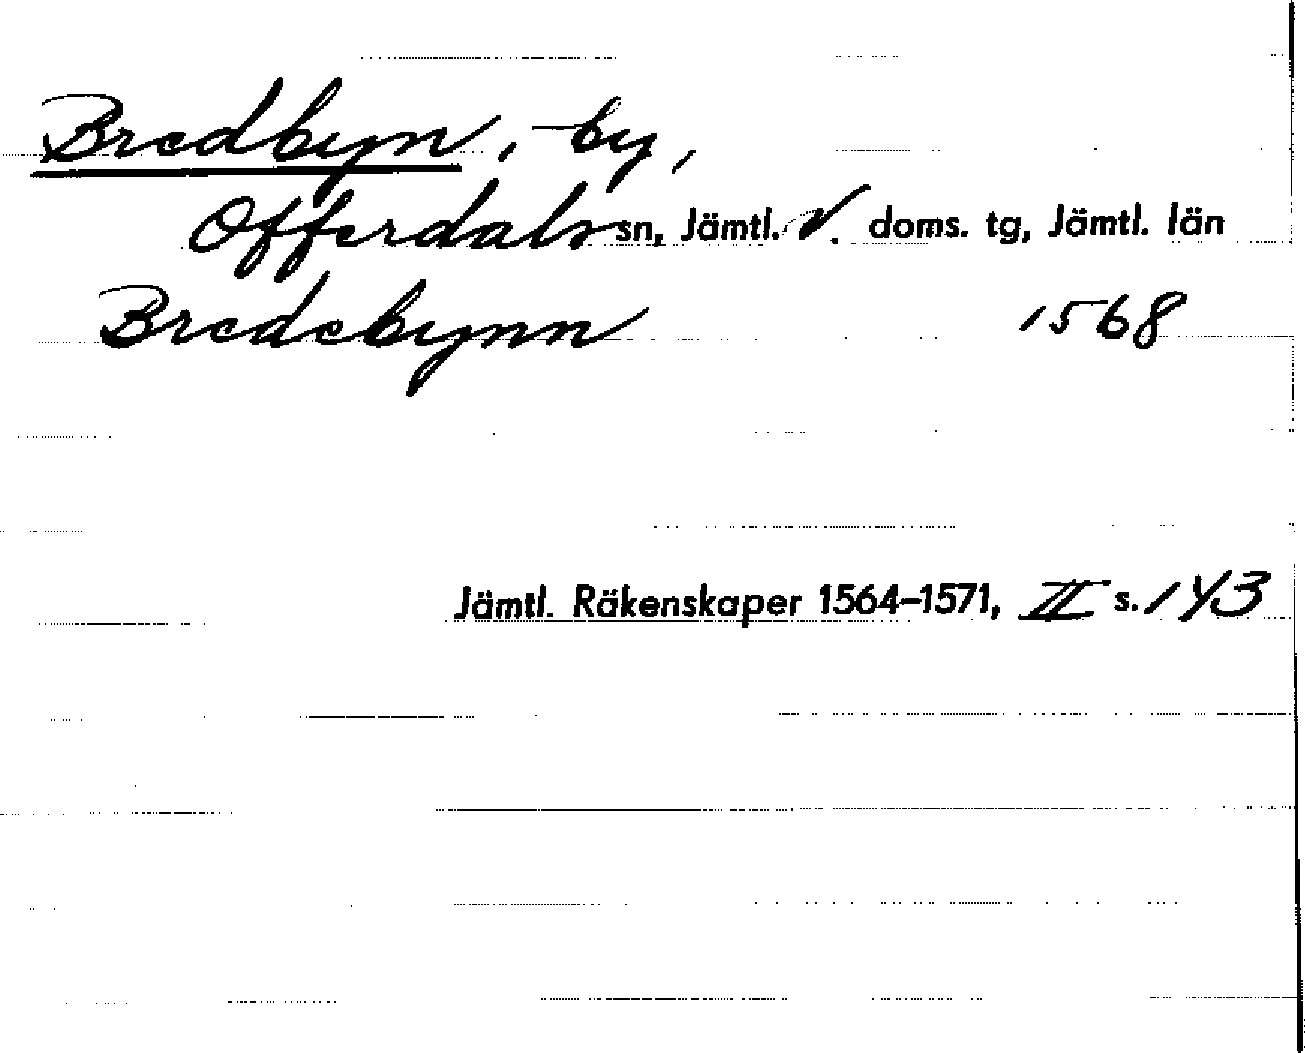 Bredbyn, by,
Offerdals sn, Jämtl. V. doms. tg, Jämtl. län
Bredebynn 1568
Jämtl. Räkenskaper 1564–1571, II s. 143